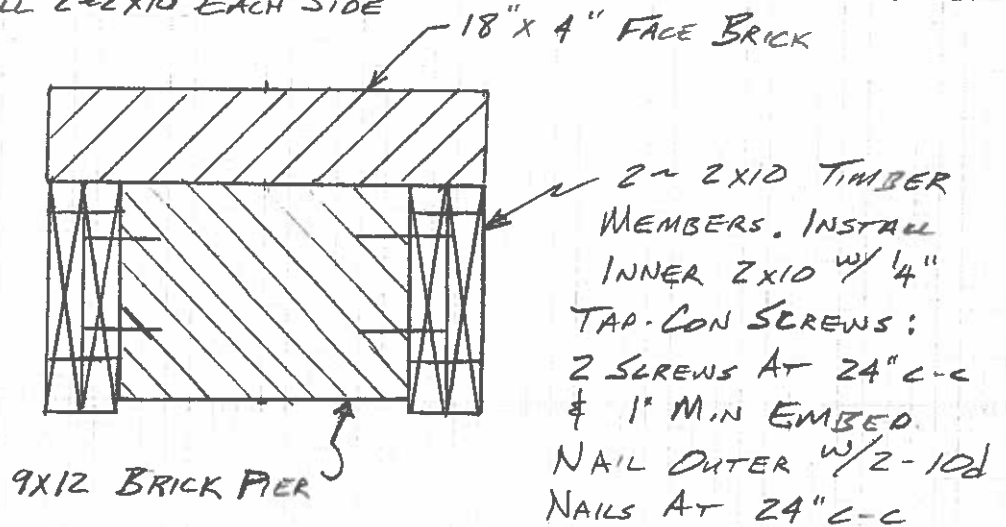 2~2x10 EACH SIDE
18" x 4" FACE BRICK
2~ 2x10 TIMBER
MEMBERS. INSTALL
INNER 2x10 w/ 1/4"
TAP-CON SCREWS:
2 SCREWS AT 24" c-c
& 1" MIN EMBED.
NAIL OUTER w/2-10d
NAILS AT 24" c-c
9x12 BRICK PIER